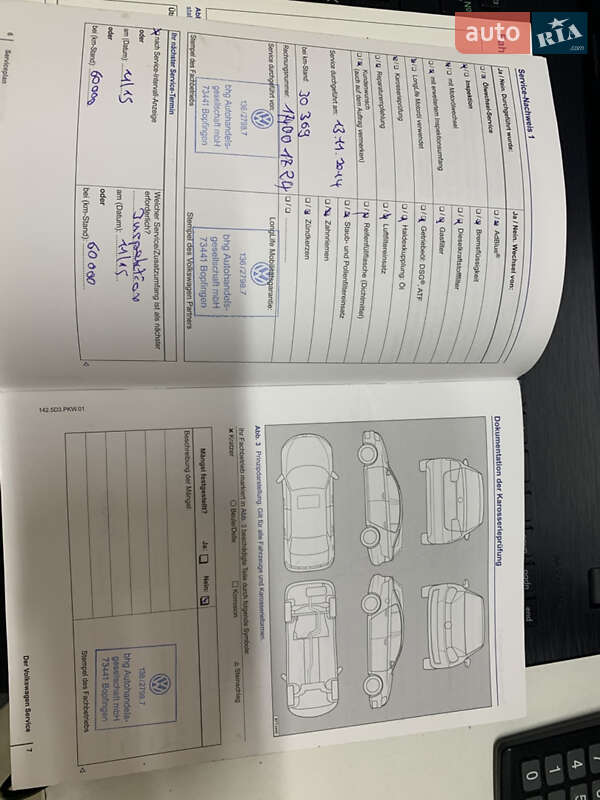 auto RIA.com
Service-Nachweis 1
Ja / Nein. Durchgeführt wurde:
Ölwechsel-Service
Inspektion
mit Motorölwechsel
mit erweitertem Inspektionsumfang
LongLife Motoröl verwendet
Karosserieprüfung
Reparaturempfehlung
Kundenwunsch
(auch auf dem Auftrag vermerken)
Service durchgeführt am: 13.11.2014
bei km-Stand: 30 369
Rechnungsnummer:
Service durchgeführt von:
138/2798.7
bhg Autohandels-
gesellschaft mbH
73441 Bopfingen
Stempel des Fachbetriebs
Ihr nächster Service-Termin
nach Service-Intervall-Anzeige
oder
am (Datum): 11/15
oder
bei (km-Stand): 60 000
6 Serviceplan
Ja / Nein. Wechsel von:
AdBlue®
Bremsflüssigkeit
Dieselkraftstofffilter
Gasfilter
Getriebeöl: DSG®, ATF
Haldexkupplung: Öl
Luftfiltereinsatz
Reifenfüllflasche (Dichtmittel)
Staub- und Pollenfiltereinsatz
Zahnriemen
Zündkerzen
LongLife Mobilitätsgarantie:
138/2798.7
bhg Autohandels-
gesellschaft mbH
73441 Bopfingen
Stempel des Volkswagen Partners
Welcher Service/Zusatzumfang ist als nächster
erforderlich?
Inspektion
am (Datum): 11/15
oder
bei (km-Stand): 60 000
142.5D3.PKW.01
Dokumentation der Karosserieprüfung
Abb. 3 Prinzipdarstellung. Gilt für alle Fahrzeuge und Karosserieformen.
Ihr Fachbetrieb markiert in Abb. 3 beschädigte Teile durch folgende Symbole:
Kratzer
Beule/Delle
Korrosion
Steinschlag
Mängel festgestellt?
Ja:
Nein:
Beschreibung der Mängel:
138/2798.7
bhg Autohandels-
gesellschaft mbH
73441 Bopfingen
Stempel des Fachbetriebs
Der Volkswagen Service 7
end
0
1
4
7